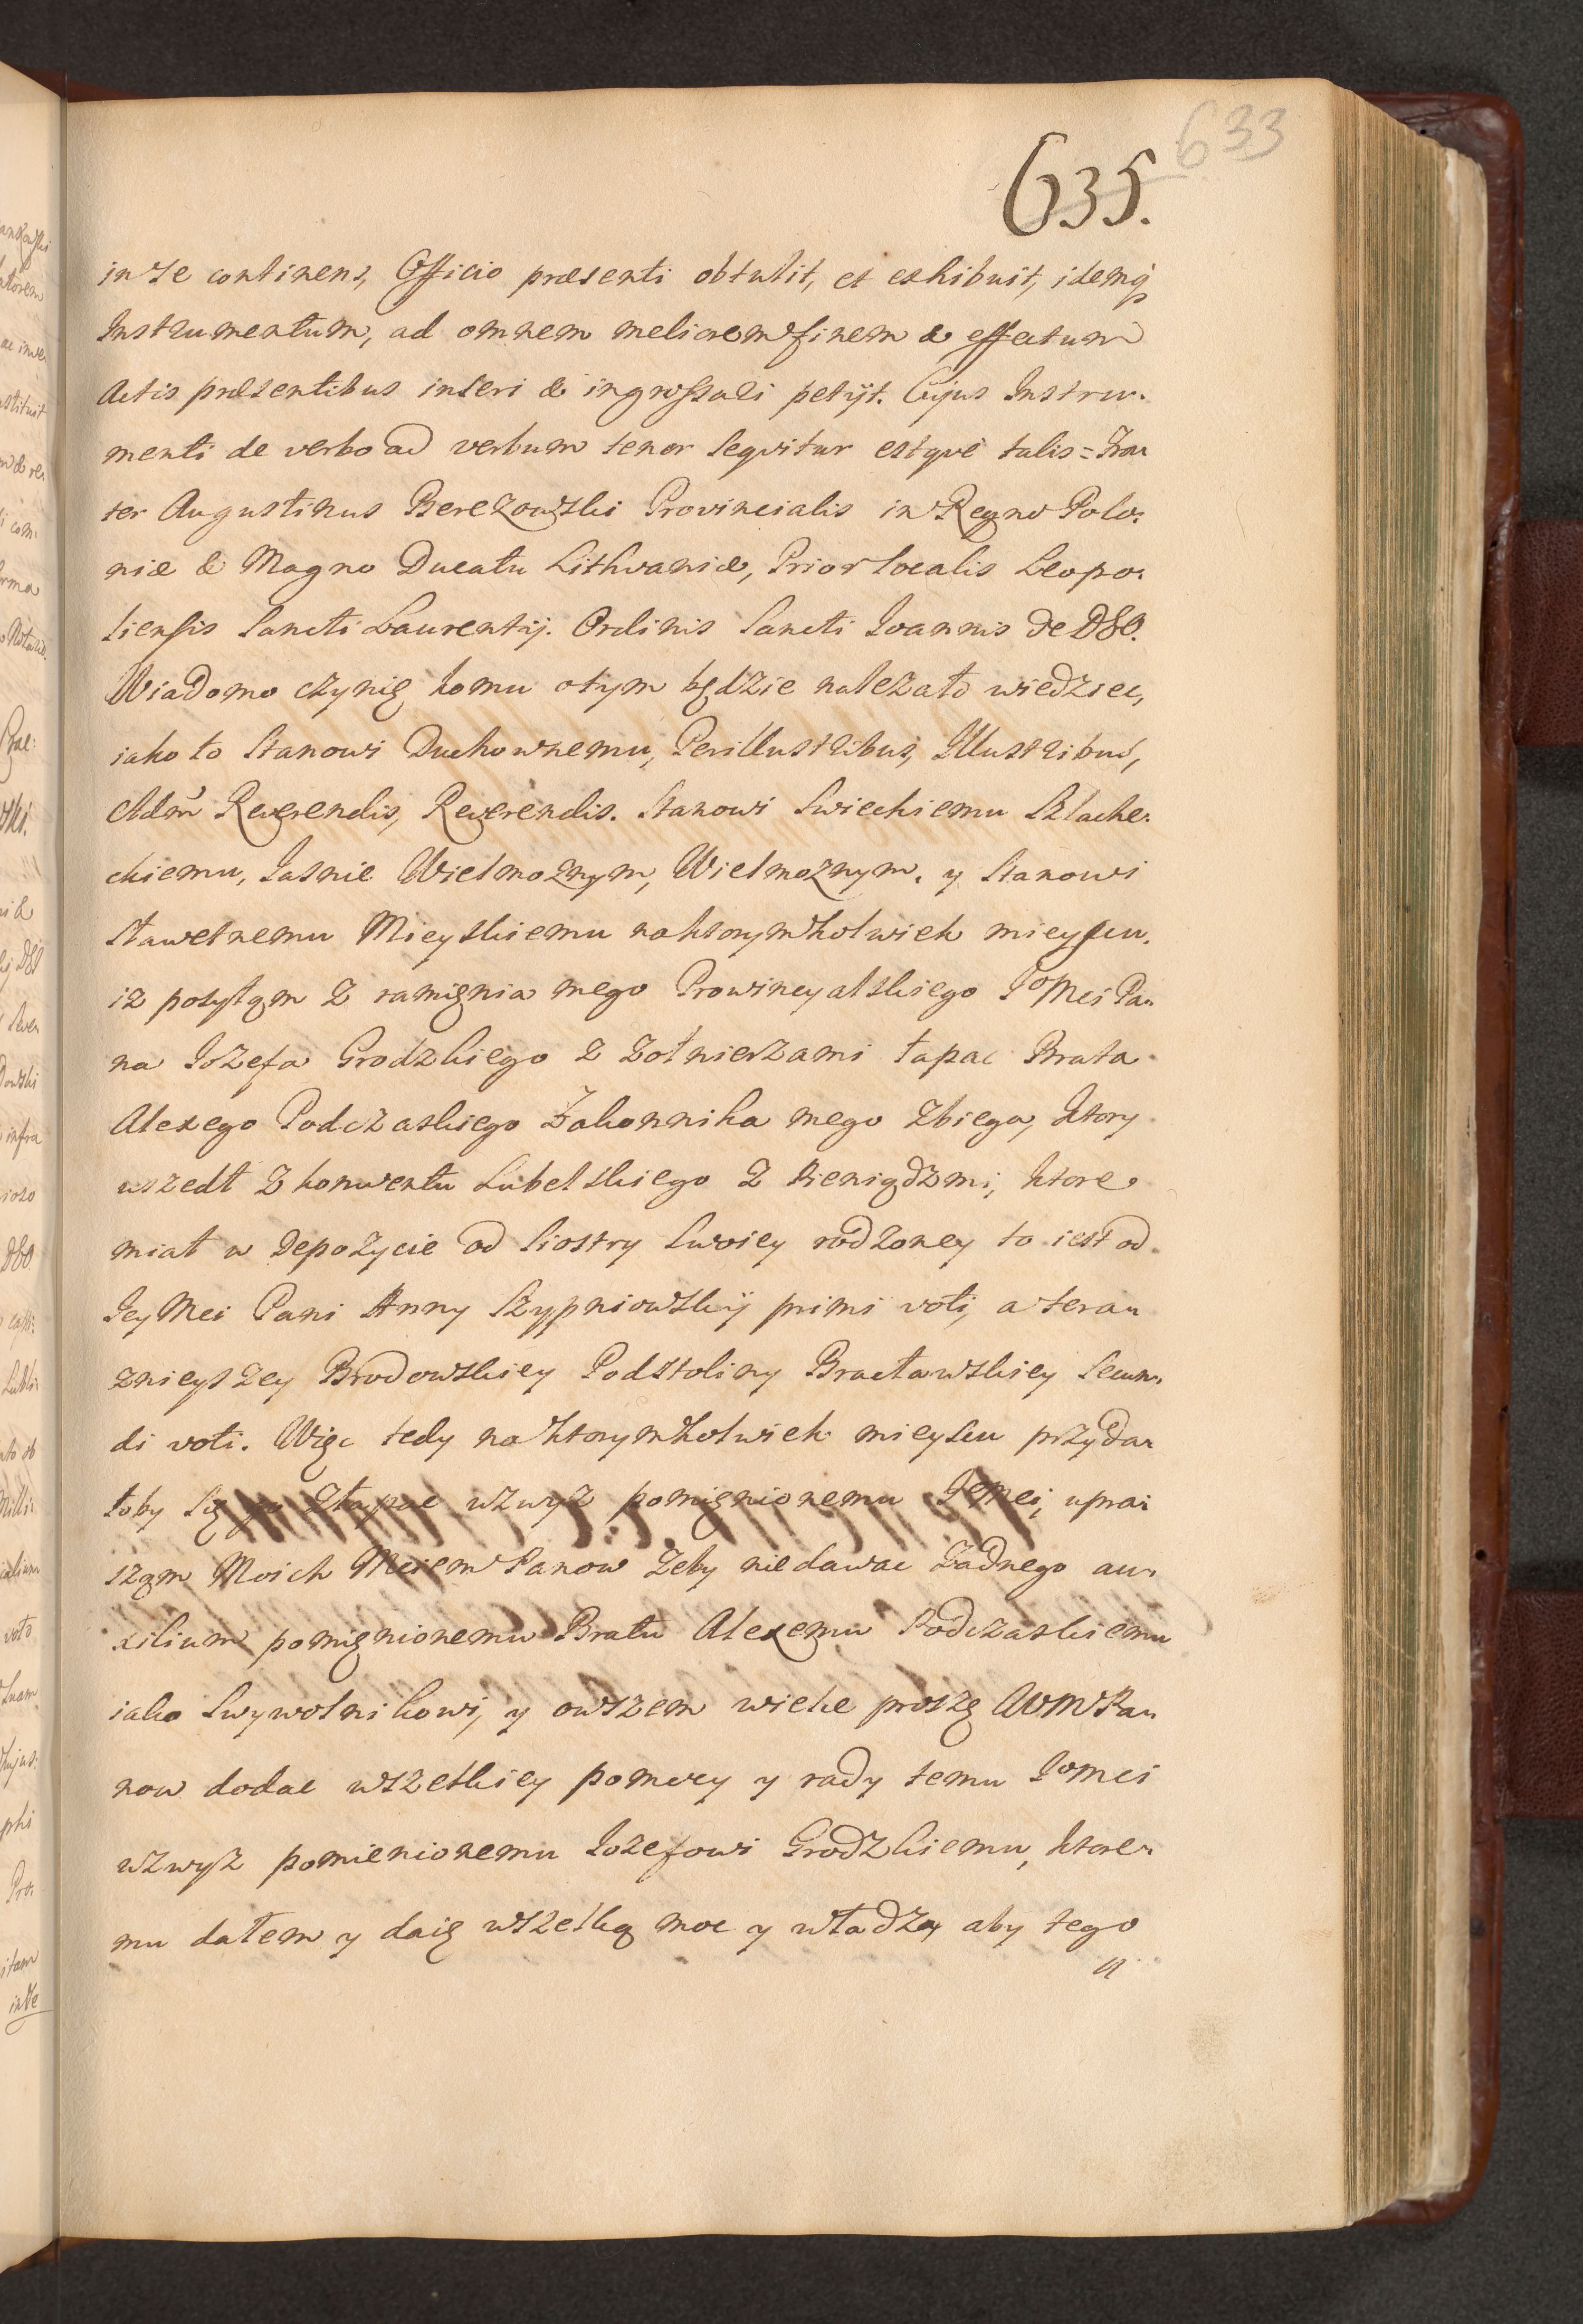 633
635.
in se continens, Officio præsenti obtulit, et exhibuit, idemq̃
Instrumentum, ad omnem meliorem finem & effectum
Actis præsentibus inseri & ingrossari petijt. Cujus Instru-
menti de verbo ad verbum tenor sequitur estque talis = Fra-
ter Augustinus Berezowski Provincialis in Regno Polo-
niæ & Magno Ducatu Lithvaniæ, Prior localis Leopo-
liensis Sancti Laurentij. Ordinis Sancti Joannis de DEO.
Wiadomo czynię komu otym będzie należało wiedziec,
iako to Stanowi Duchownemu, Perillustribus, Illustribus,
Adm̃ Reverendis, Reverendis. Stanowi Swieckiemu Szlache-
ckiemu, Jasnie Wielmoznym, Wielmoznym. y Stanowi
Sławetnemu Mieyskiemu naktorymkolwiek mieyscu.
iz posyłąm z ramięnia mego Prowincyalskiego JoMci Pa-
na Jozefa Grodzkiego z zołnierzami łapac Brata
Alexego Podczaskiego Zakonnika mego zbiega, ktory
uszedł z konwentu Lubelskiego z Pieniądzmi, ktore
miał w Depozycie od Siostry Swoiey rodzoney to iest od
JeyMci Pani Anny Szypniowskÿ primi voti, a tera-
znieyszey Brodowskiey Podstoliny Bracławskiey Secun-
di voti. Więc tedy naktorymkolwiek mieyscu przyda-
łoby się go złapac wzwyz pomięnionemu JeMci, upra-
sząm Moich Mciem Panow zeby niedawac zadnego au-
xilium pomięnionemu Bratu Alexemu Podczaskiemu
iako Swywolnikowi, y owszem wielce proszę WMPa-
now dodac wszelkiey pomocy y rady temu JoMci
wzwyz pomienionemu Jozefowi Grodzkiemu, ktore-
mu dałem y daię wszelką moc y władzą aby tego